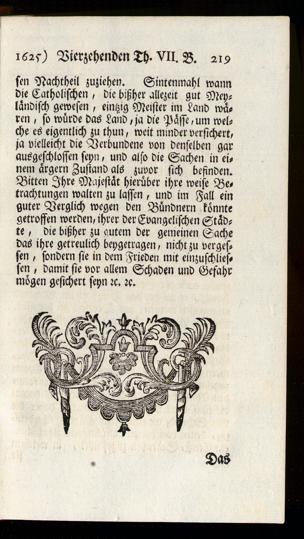 1625) Vierzehenden Th. VII. B. 219
sen Nachtheil zuziehen. Sintenmahl wann
die Catholischen, die bißher allezeit gut Mey-
ländisch gewesen, eintzig Meister im Land wä-
ren, so würde das Land, ja die Pässe, um wel-
che es eigentlich zu thun, weit minder versichert,
ja vielleicht die Verbundene von denselben gar
ausgeschlossen seyn, und also die Sachen in ei-
nem ärgern Zustand als zuvor sich befinden.
Bitten Ihre Majestät hierüber ihre weise Be-
trachtungen walten zu lassen, und im Fall ein
guter Verglich wegen den Bündnern könnte
getroffen werden, ihrer der Evangelischen Städ-
te, die bißher zu autem der gemeinen Sache
das ihre getreulich beygetragen, nicht zu verges-
sen, sondern sie in dem Frieden mit einzuschlies-
sen, damit sie vor allem Schaden und Gefahr
mögen gesichert seyn ꝛc. ꝛc.
Das